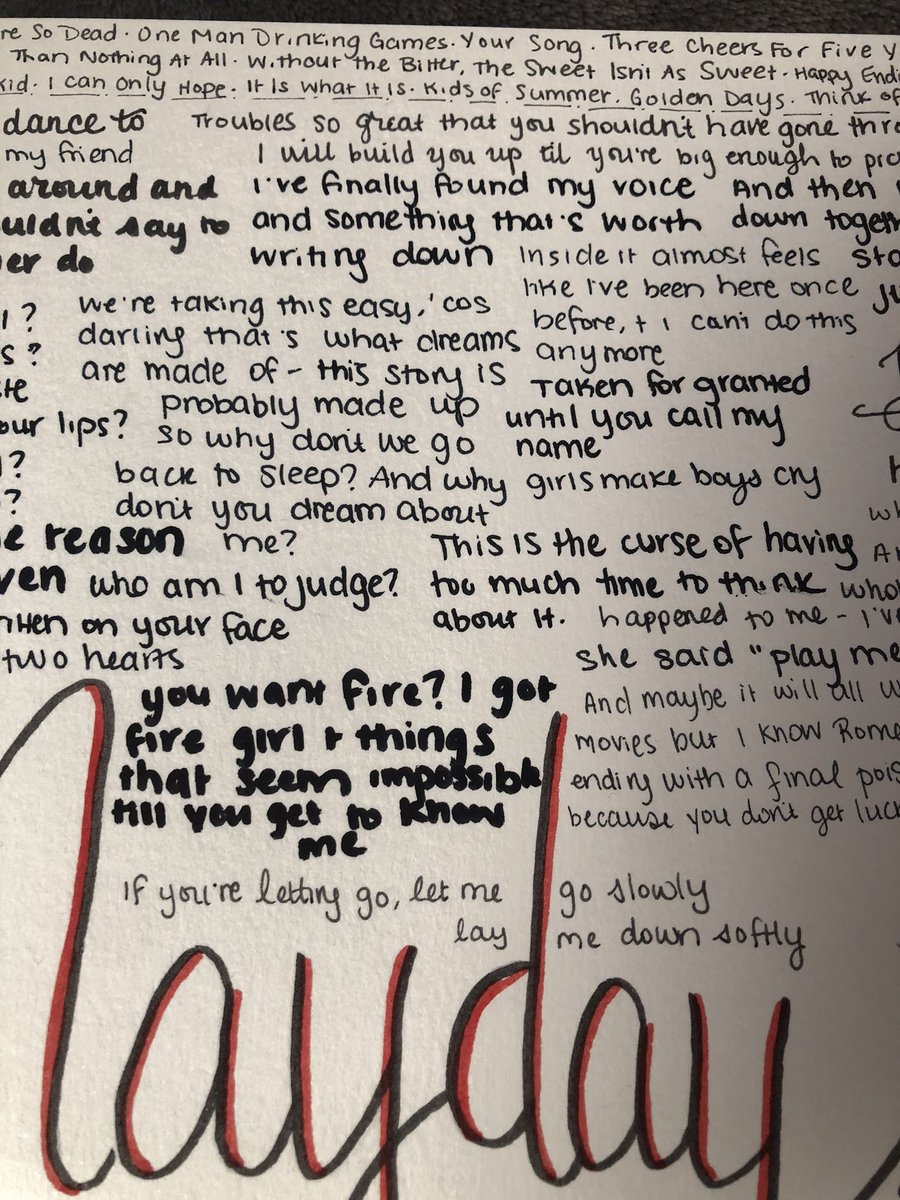 re So Dead · One Man Drinking Games · Your Song · Three Cheers For Five Y
Than Nothing At All · Without the Bitter, The Sweet Isn't As Sweet · Happy Endi
kid · I Can Only Hope · It Is What It Is · Kids of Summer · Golden Days · Think of
dance to
my friend
around and
ouldn't say to
her do
Troubles so great that you shouldn't have gone thro
I will build you up til you're big enough to
I've finally found my voice
and something that's worth
writing down
And then
down togeth
Inside it almost feels
like I've been here once
before, + I can't do this
anymore
sta
?
s?
our lips?
?
?
we're taking this easy, 'cos
darling that's what dreams
are made of - this story is
probably made up
so why don't we go
back to sleep? And why
don't you dream about
me?
Taken for granted
until you call my
name
girls make boys cry
e reason
ven
who am I to judge?
tten on your face
two hearts
This is the curse of having
too much time to think
about it.
happened to me - I've
she said "play me
And maybe it will all w
movies but I know Rome
ending with a final pois
because you don't get luck
you want fire? I got
fire girl + things
that seem impossible
till you get to know
me
If you're letting go, let me go slowly
lay me down softly
layday